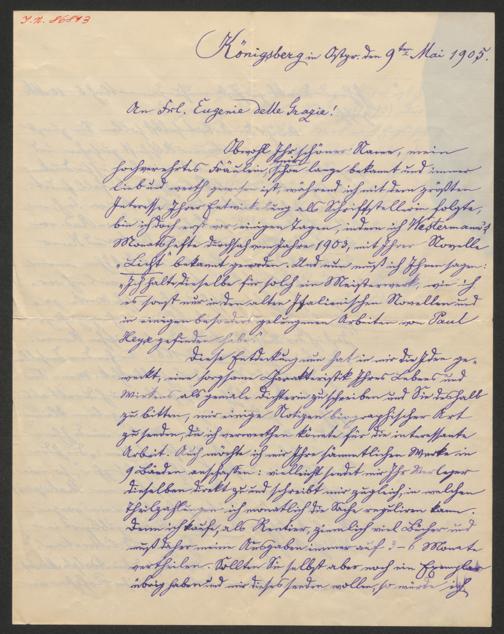 I.N. 86873
Königsberg in Ostpr. den 9ten Mai 1905.
An Frl. Eugenie delle Grazie!
Obwohl Ihr schöner Name, mein
hochverehrtes Fräulein, mir schon lange bekannt und immer
lieb und werth gewesen ist, während ich mit dem größten
Interesse Ihrer Entwickelung als Schriftstellerin folgte,
bin ich doch erst vor einigen Tagen, indem ich Westermann's
Monatshefte durchsah vom Jahre 1903, mit Ihrer Novelle
"Licht" bekannt geworden. Und nun muß ich Ihnen sagen:
"Ich halte dieselbe für solch ein Meisterwerk, wie ich
es sonst nur in den alten Italienischen Novellen und
in einigen besonders gelungenen Arbeiten von Paul
Heyse gefunden habe."
Diese Entdeckung nun hat in mir die Idee ge-
weckt, eine sorgsame Charakteristik Ihres Lebens und
Wirkens als geniale Dichterin zu schreiben und Sie deshalb
zu bitten, mir einige Notizen biographischer Art
zu senden, die ich verwerthen könnte für die interessante
Arbeit. Auch möchte ich mir Ihre sämmtlichen Werke in
9 Bänden anschaffen: vielleicht sendet mir Ihr Verleger
dieselben direkt zu und schreibt mir zugleich, in welchen
Theilzahlungen ich monatlich die Sache reguliren kann.
Denn ich kaufe, als Rentier, ziemlich viel Bücher und
muß daher meine Ausgaben immer auf 3-6 Monate
vertheilen. Sollten Sie selbst aber noch ein Exemplar
übrig haben und mir dieses senden wollen, so würde ich